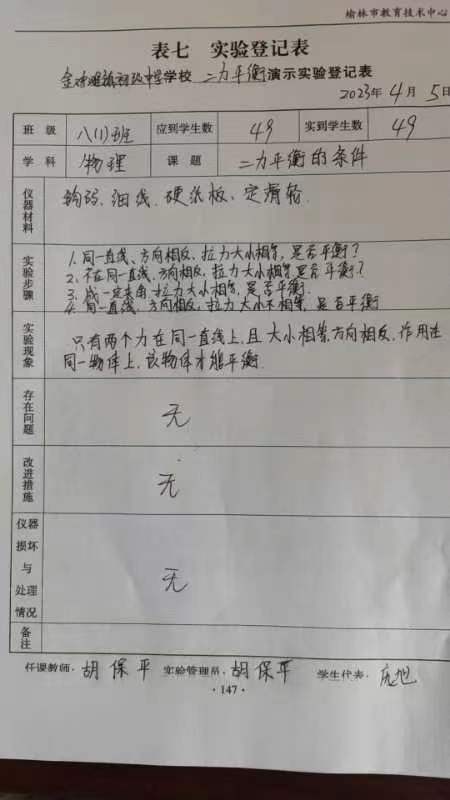 榆林市教育技术中心
表七 实验登记表
镇初级中学学校 二力平衡演示实验登记表
2023年4月5日
班级 八(1)班 应到学生数 49 实到学生数 49
学科 物理 课题 二力平衡的条件
仪器材料 钩码、细线、硬纸板、定滑轮.
实验步骤 1.同一直线、方向相反、拉力大小相等,是否平衡?
2.不在同一直线、方向相反、拉力大小相等是否平衡?
3.成一定夹角,拉力大小相等,是否平衡.
4.同一直线、方向相反,拉力大小不相等,是否平衡
实验现象 只有两个力在同一直线上,且大小相等,方向相反,作用在
同一物体上,该物体才能平衡.
存在问题 无
改进措施 无
仪器损坏与处理情况 无
备注
任课教师:胡保平 实验管理员:胡保平 学生代表:
·147·